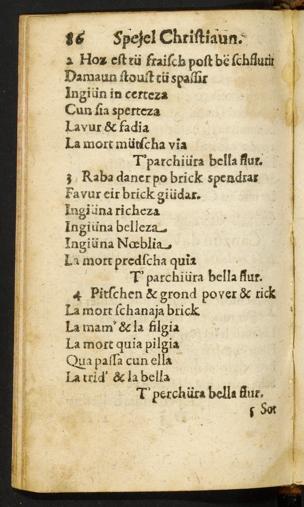 86 Speſel Chriſtiaun.
2 Hoz eſt tü fraiſch poſt bẽ ſchflurir
Damaun ſtouſt tü ſpaſſir
Ingiün in certeza
Cun ſia ſperteza
Lavur & fadia
La mort mütſcha via
T'parchiüra bella flur.
3 Raba daner po brick ſpendrar
Favur eir brick giüdar.
Ingiüna richeza
Ingiüna belleza
Ingiüna Nœblia
La mort predſcha quia
T'parchiüra bella flur.
4 Pitſchen & grond pover & rick
La mort ſchanaja brick
La mam' & la filgia
La mort quia pilgia
Qua paſſa cun ella
La trid' & la bella
T'perchüra bella flur.
5 Sot